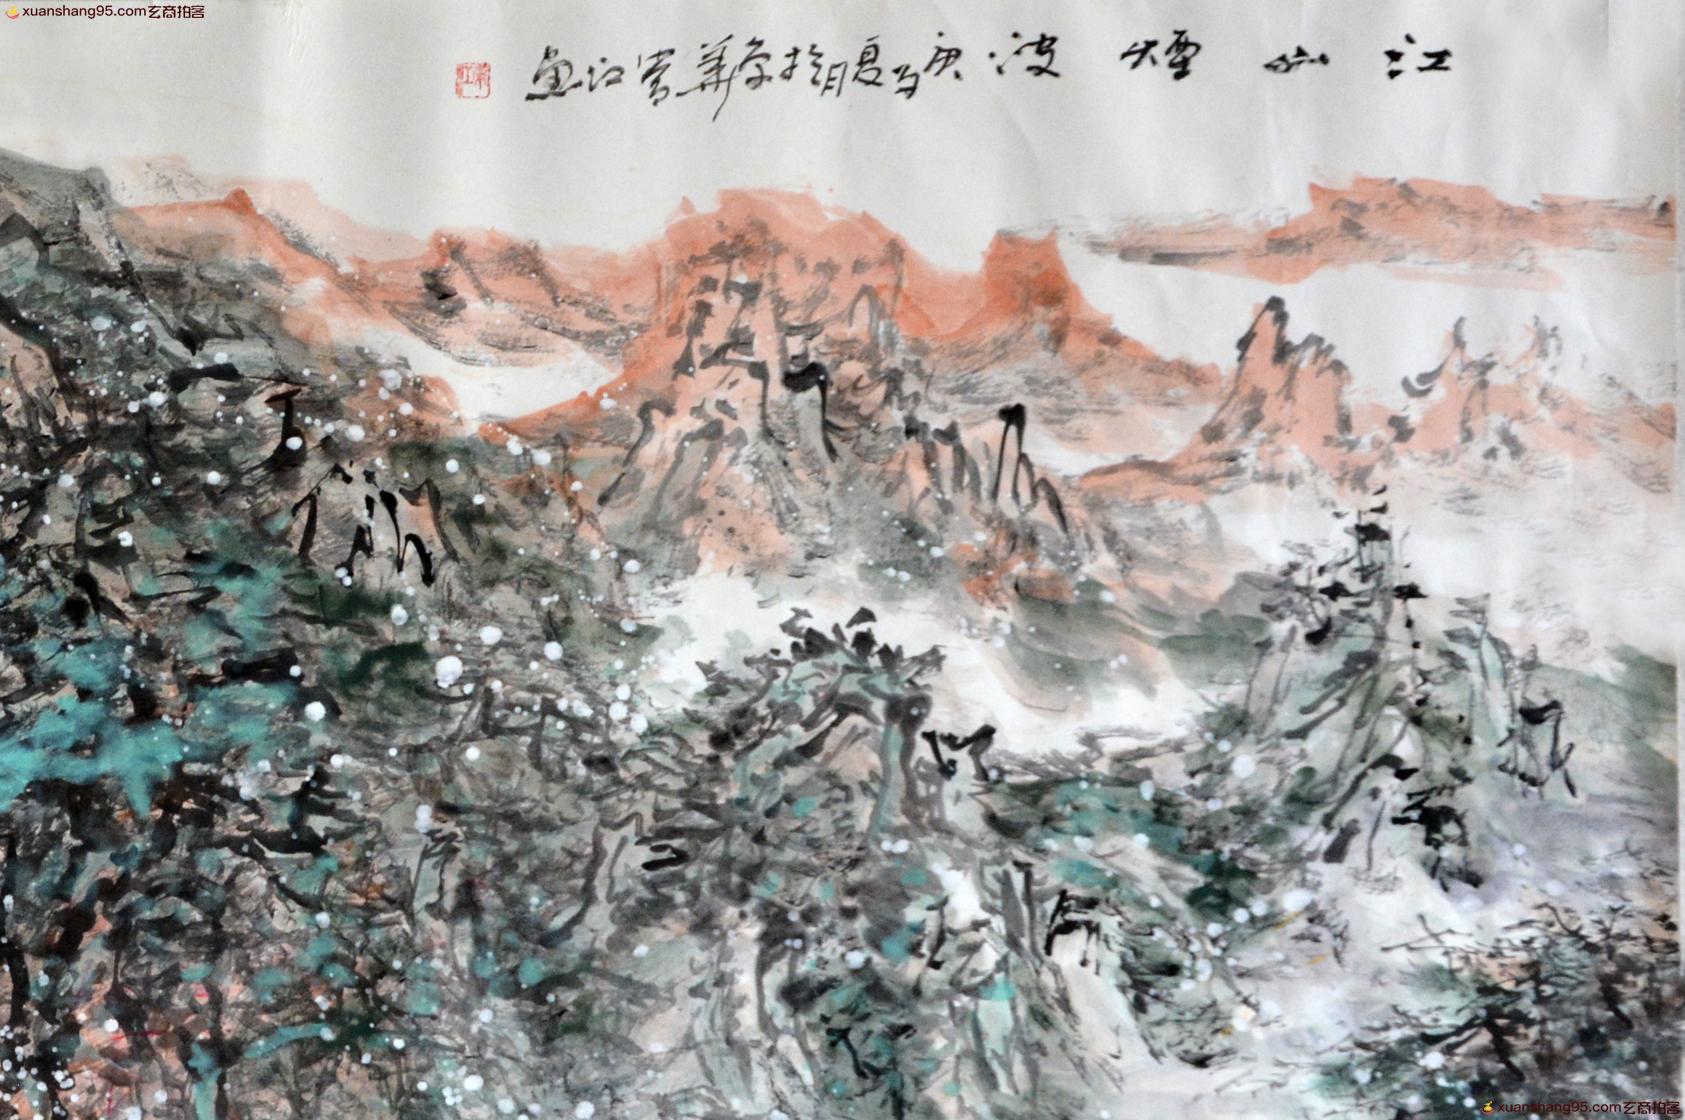 xuanshang95.com玄商拍客
江山煙波 庚夏月於京華常江画
xuanshang95.com玄商拍客